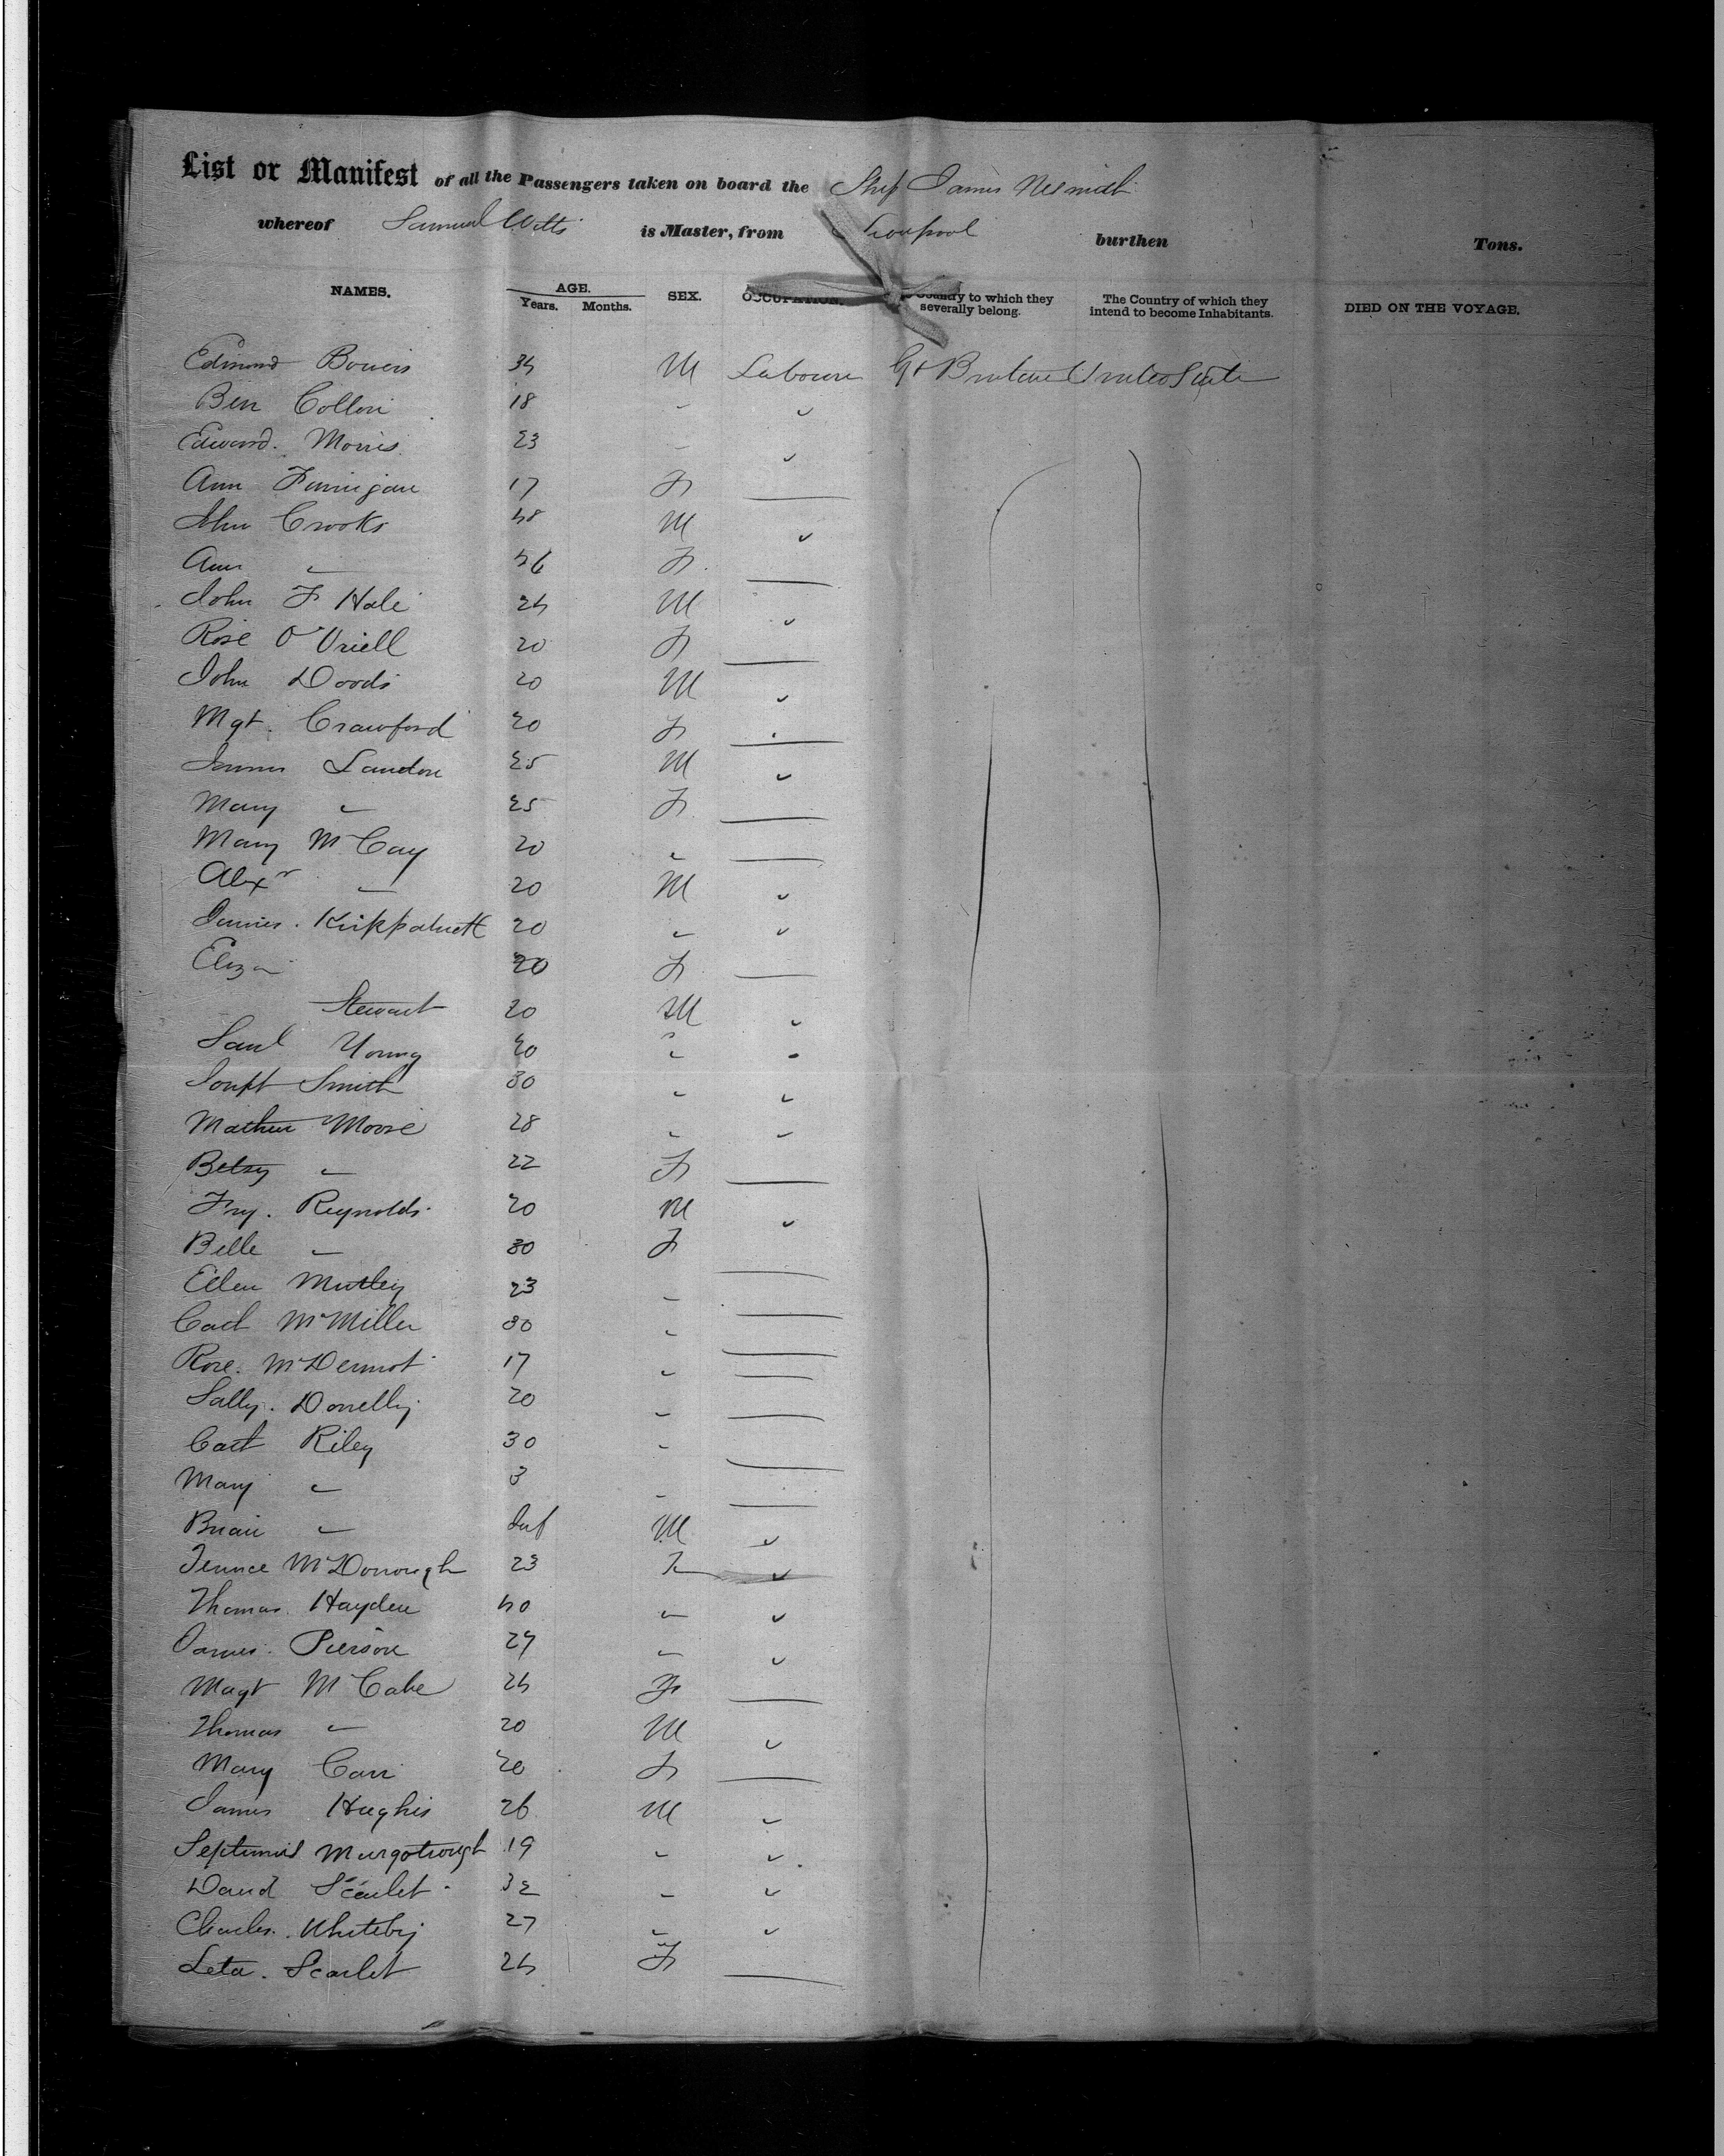 List or Manifest of all the Passengers taken on board the Ship James Nesmith
whereof Samuel Watts is Master, from Liverpool burthen Tons.
NAMES. AGE. Years. Months. SEX. OCCUPATION. Country to which they severally belong. The Country of which they intend to become Inhabitants. DIED ON THE VOYAGE.
Edmond Bowers 34 M Labourer Gt Britain United States
Ben Collon 18 "
Edward Morris 23 "
Ann Finnigan 17 F
John Crooks 48 M "
Ann " 46 F
John F Hale 24 M "
Rose O'Neill 20 F
John Woods 20 M "
Mgt. Crawford 20 F
James Landon 25 M "
Mary " 25 F
Mary McCay 20 "
Alexr " 20 M "
James Kirkpatrick 20 " "
Eliza 20 F
Stewart 20 M "
Saml Young 20 "
Joseph Smith 30 " "
Mathew Moore 28 " "
Betsy " 22 F
Fry. Reynolds 20 M "
Belle " 30 F
Ellen Murtey 23 "
Cath McMiller 30 "
Rose McDermot 17 "
Sally Donnelly 20 "
Cath Riley 30 "
Mary " 3 "
Brian " Inf M "
Terence McDonough 23 "
Thomas Hayden 40 " "
James Pierson 27 " "
Magt McCabe 24 F
Thomas " 20 M "
Mary Carr 20 F
James Hughes 26 M "
Septimus 19 " "
David Scarlet 32 " "
Charles Whiteby 27 " "
Leta Scarlet 24 F